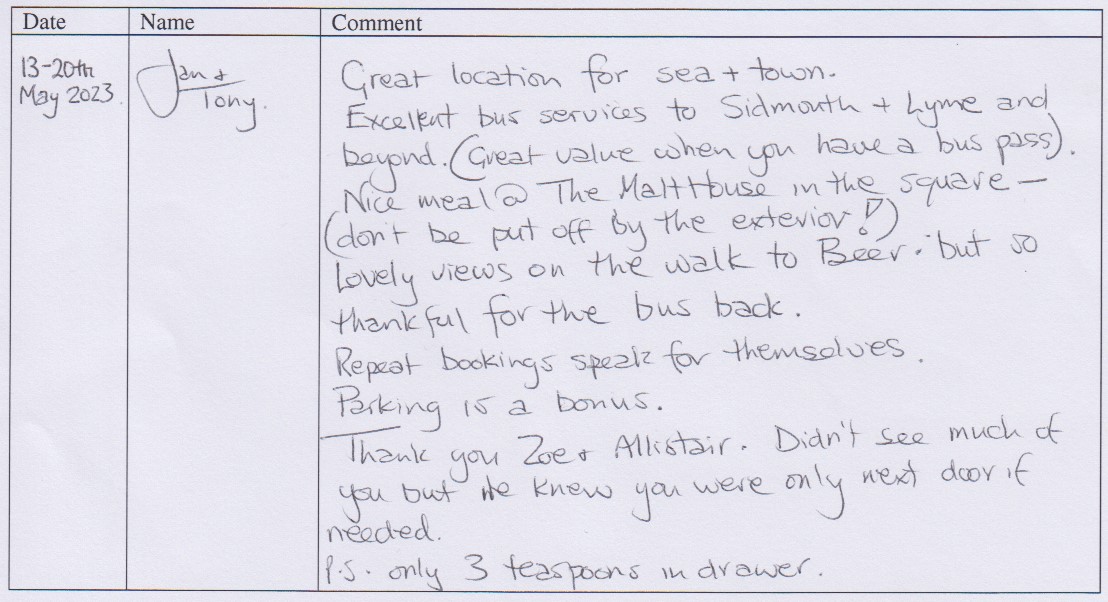 Date Name Comment
13-20th
May 2023.
Jan +
Tony.
Great location for sea + town.
Excellent bus services to Sidmouth + Lyme and
beyond. (Great value when you have a bus pass).
Nice meal @ The Malt House in the square –
(don't be put off by the exterior!)
Lovely views on the walk to Beer. but so
thankful for the bus back.
Repeat bookings speak for themselves.
Parking is a bonus.
Thank you Zoe + Allistair. Didn't see much of
you but we knew you were only next door if
needed.
P.S. only 3 teaspoons in drawer.